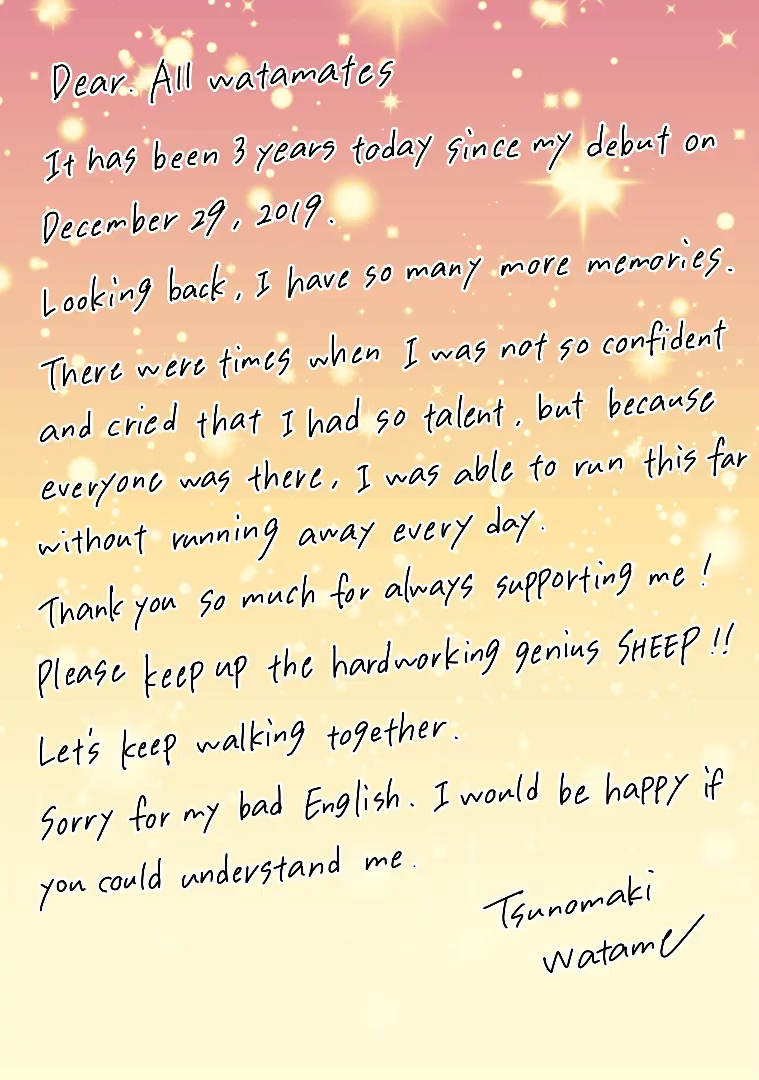 Dear. All watamates
It has been 3 years today since my debut on
December 29, 2019.
Looking back, I have so many more memories.
There were times when I was not so confident
and cried that I had so talent, but because
everyone was there, I was able to run this far
without running away every day.
Thank you so much for always supporting me!
Please keep up the hardworking genius SHEEP!!
Let's keep walking together.
Sorry for my bad English. I would be happy if
you could understand me.
Tsunomaki
Watame